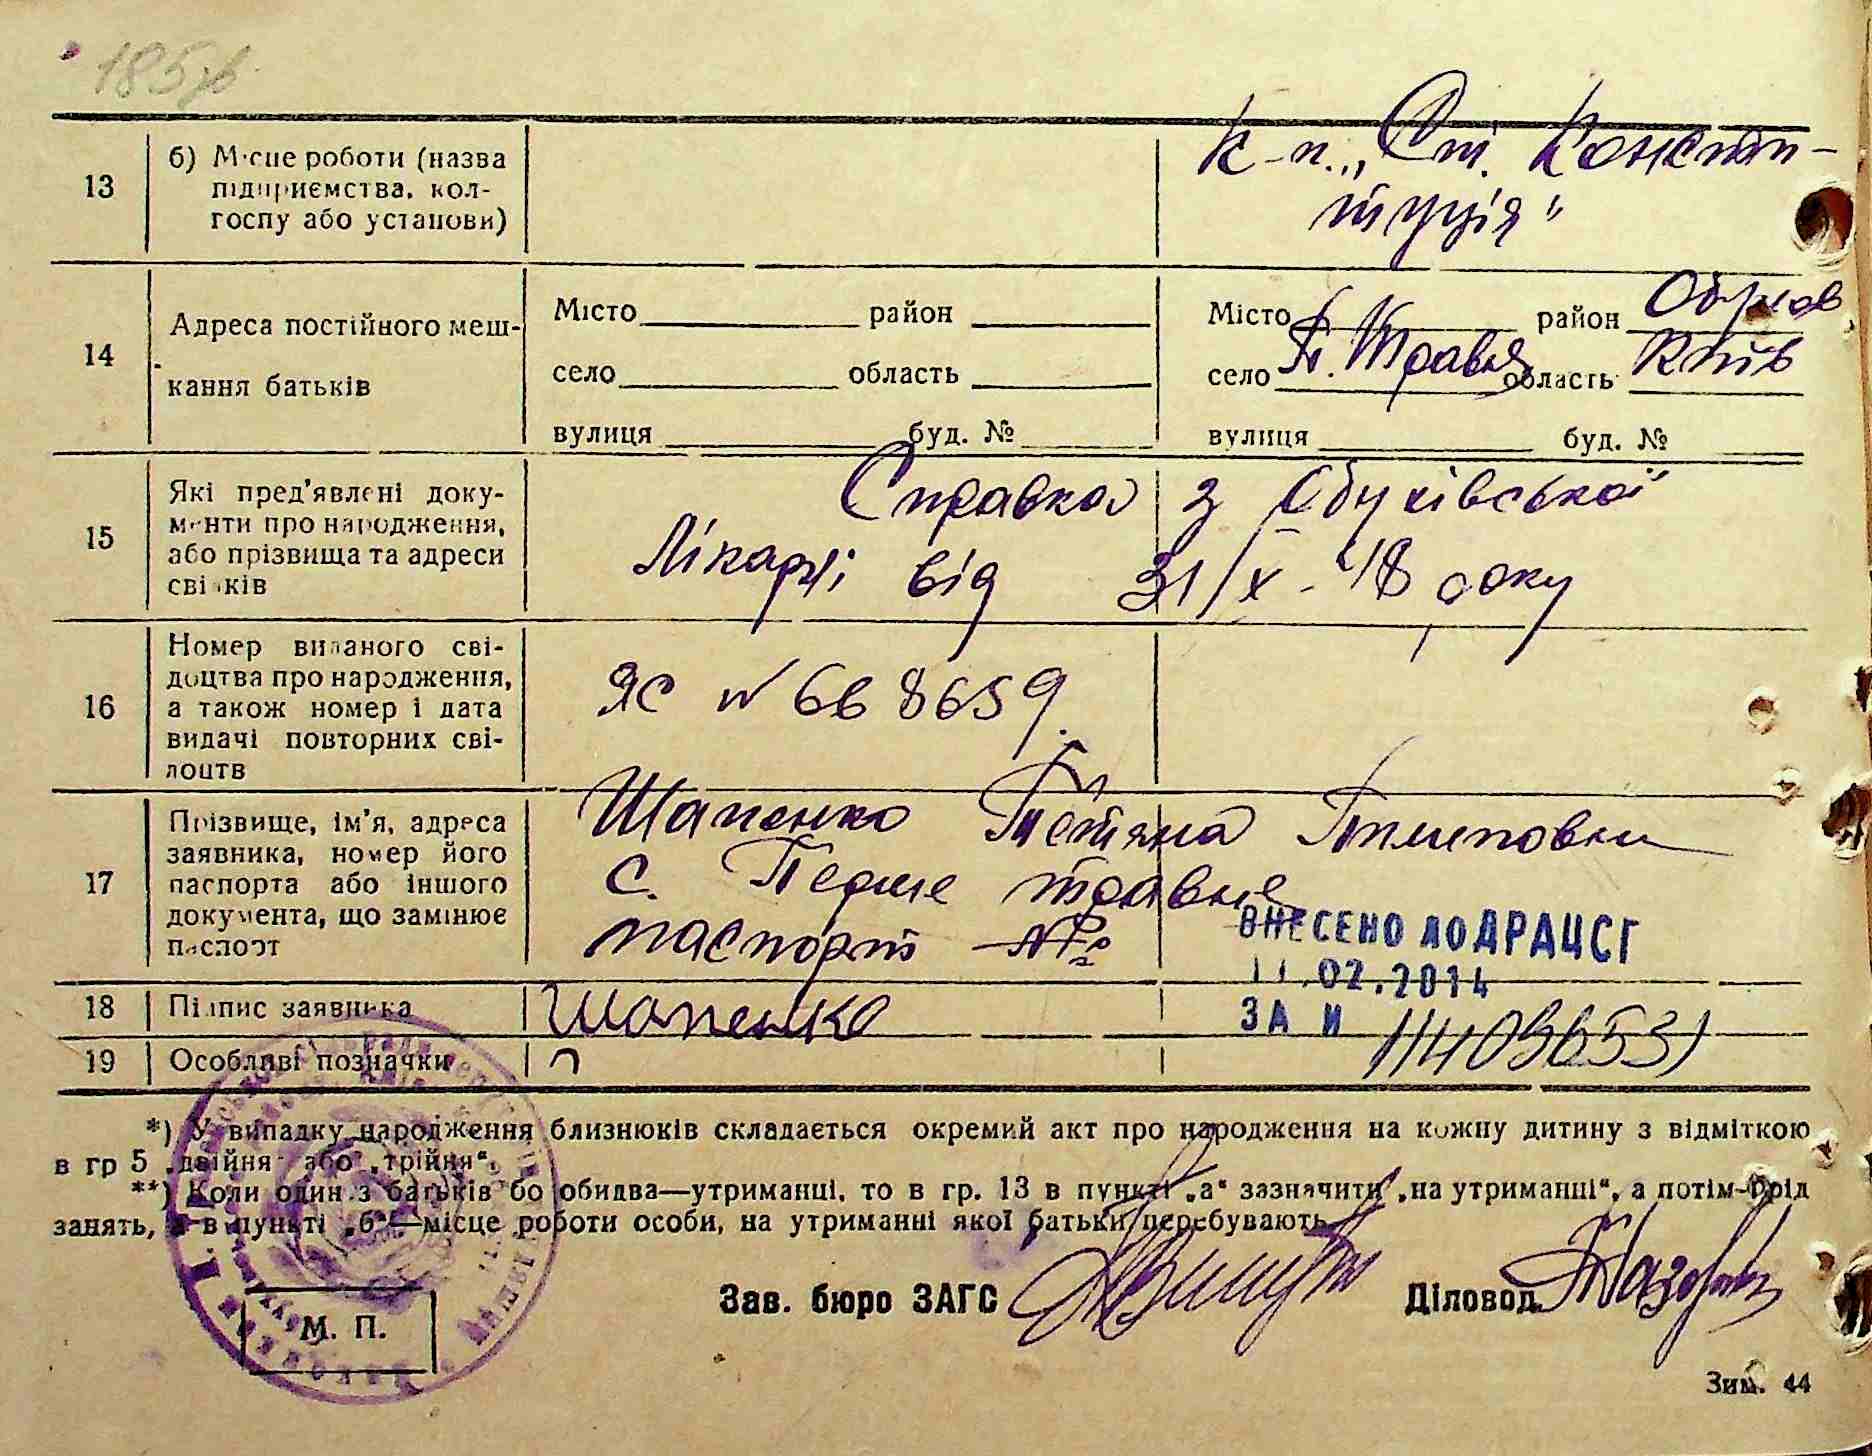 185
13
б) Місце роботи (назва
підприємства, кол-
госпу або установи)
К-п. „Ст. Консти-
туція"
14
Адреса постійного меш-
кання батьків
Місто район
село область
вулиця буд. №
Місто район Обухов
село П. Травня область Київ
вулиця буд. №
15
Які пред'явлені доку-
менти про народження,
або прізвища та адреси
свідків
Справка з Обухівської
Лікарні від 31/X-48 року
16
Номер виданого сві-
доцтва про народження,
а також номер і дата
видачі повторних сві-
доцтв
ЯС № 668659
17
Прізвище, ім'я, адреса
заявника, номер його
паспорта або іншого
документа, що замінює
паспорт
Шапенко Тетяна
с. Перше травня
паспорт №
ВНЕСЕНО ДО ДРАЦСГ
11.02.2014
ЗА №
18
Підпис заявника
Шапенко
19
Особливі позначки
*) У випадку народження близнюків складається окремий акт про народження на кожну дитину з відміткою
в гр 5 „двійня" або „трійня".
**) Коли один з батьків бо обидва—утриманці, то в гр. 13 в пункті „а" зазначити „на утриманні", а потім—рід
занять, а в пункті „б"—місце роботи особи, на утриманні якої батьки перебувають.
Зав. бюро ЗАГС
Діловод
М. П.
Зим. 44